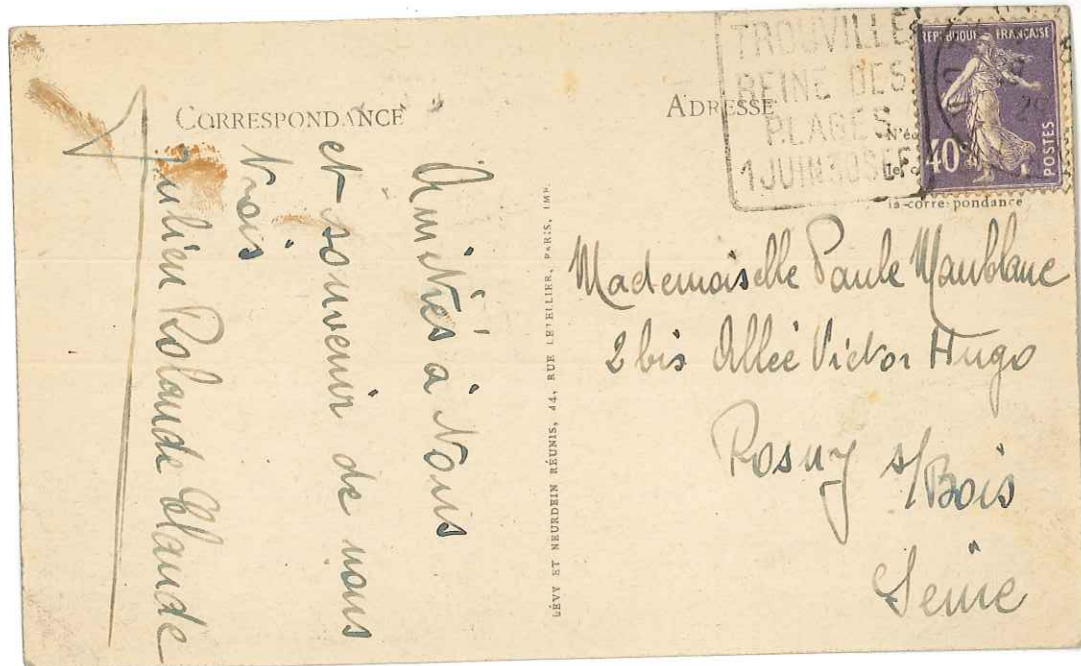 CORRESPONDANCE
Amitiés à Vous
et souvenir de nous
trois
Julien Rolande Claude
LÉVY ET NEURDEIN RÉUNIS, 44, RUE LETELLIER, PARIS, IMP.
ADRESSE
TROUVILLE
REINE DES
PLAGES
1 JUIN 30 SEP
REPUBLIQUE FRANÇAISE
40c
POSTES
la correspondance
Mademoiselle Paule Maublanc
2 bis Allée Victor Hugo
Rosny s/Bois
Seine